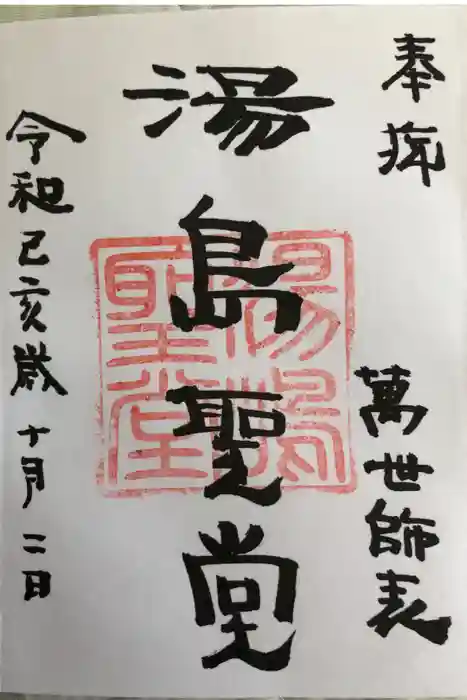 奉拝
萬世師表
湯島聖堂
湯島
聖堂
令和己亥歳 十月二日